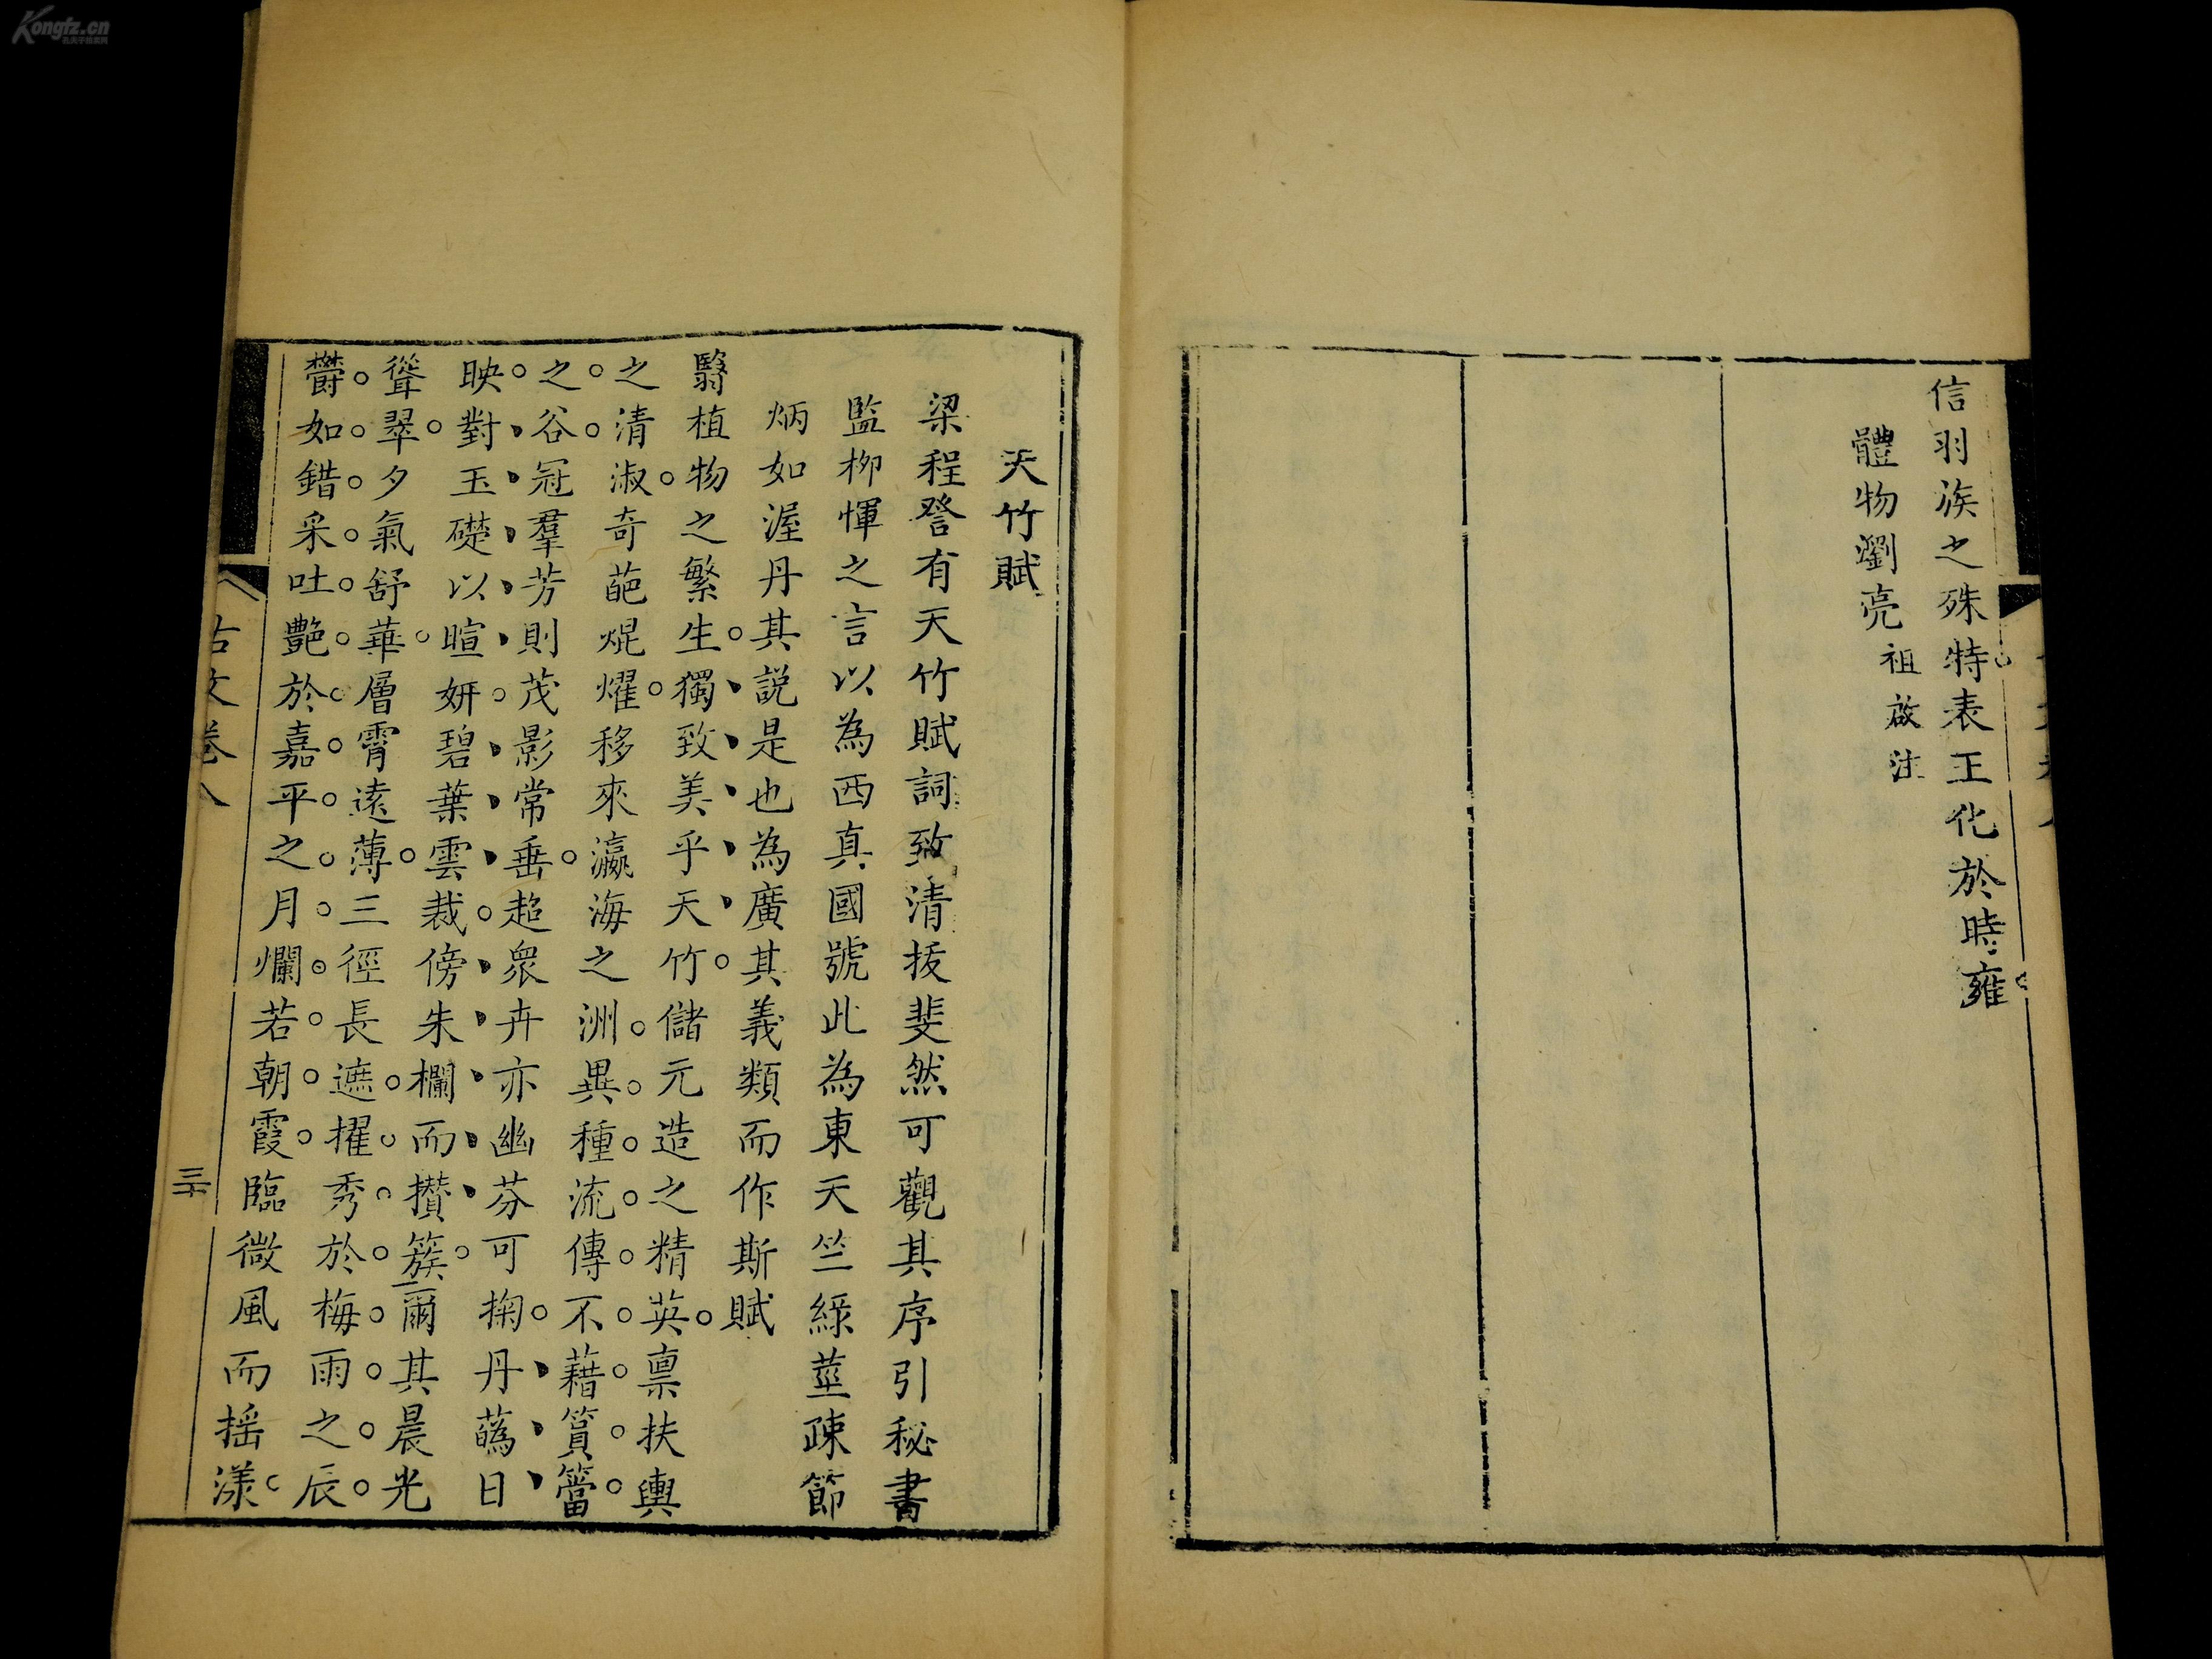 Kongfz.cn
孔夫子旧书网
信羽族之殊特表王化於時雍
體物瀏亮祖啟注
天竹賦
梁程詧有天竹賦詞致清拔斐然可觀其序引秘書
監栁惲之言以為西真國號此為東天竺綠莖疎節
炳如渥丹其説是也為廣其義類而作斯賦
翳植物之繁生獨致美乎天竹儲元造之精英禀扶輿
之清淑奇葩焜燿移來瀛海之洲異種流傳不藉篔簹
之谷冠羣芳則茂影常垂超衆卉亦幽芬可掬丹蘤日
映對玉礎以暄妍碧葉雲裁傍朱欄而攅簇爾其晨光
聳翠夕氣舒華層霄遠薄三徑長遮擢秀於梅雨之辰
欝如錯采吐艷於嘉平之月爛若朝霞臨微風而揺漾
古文卷八
三十